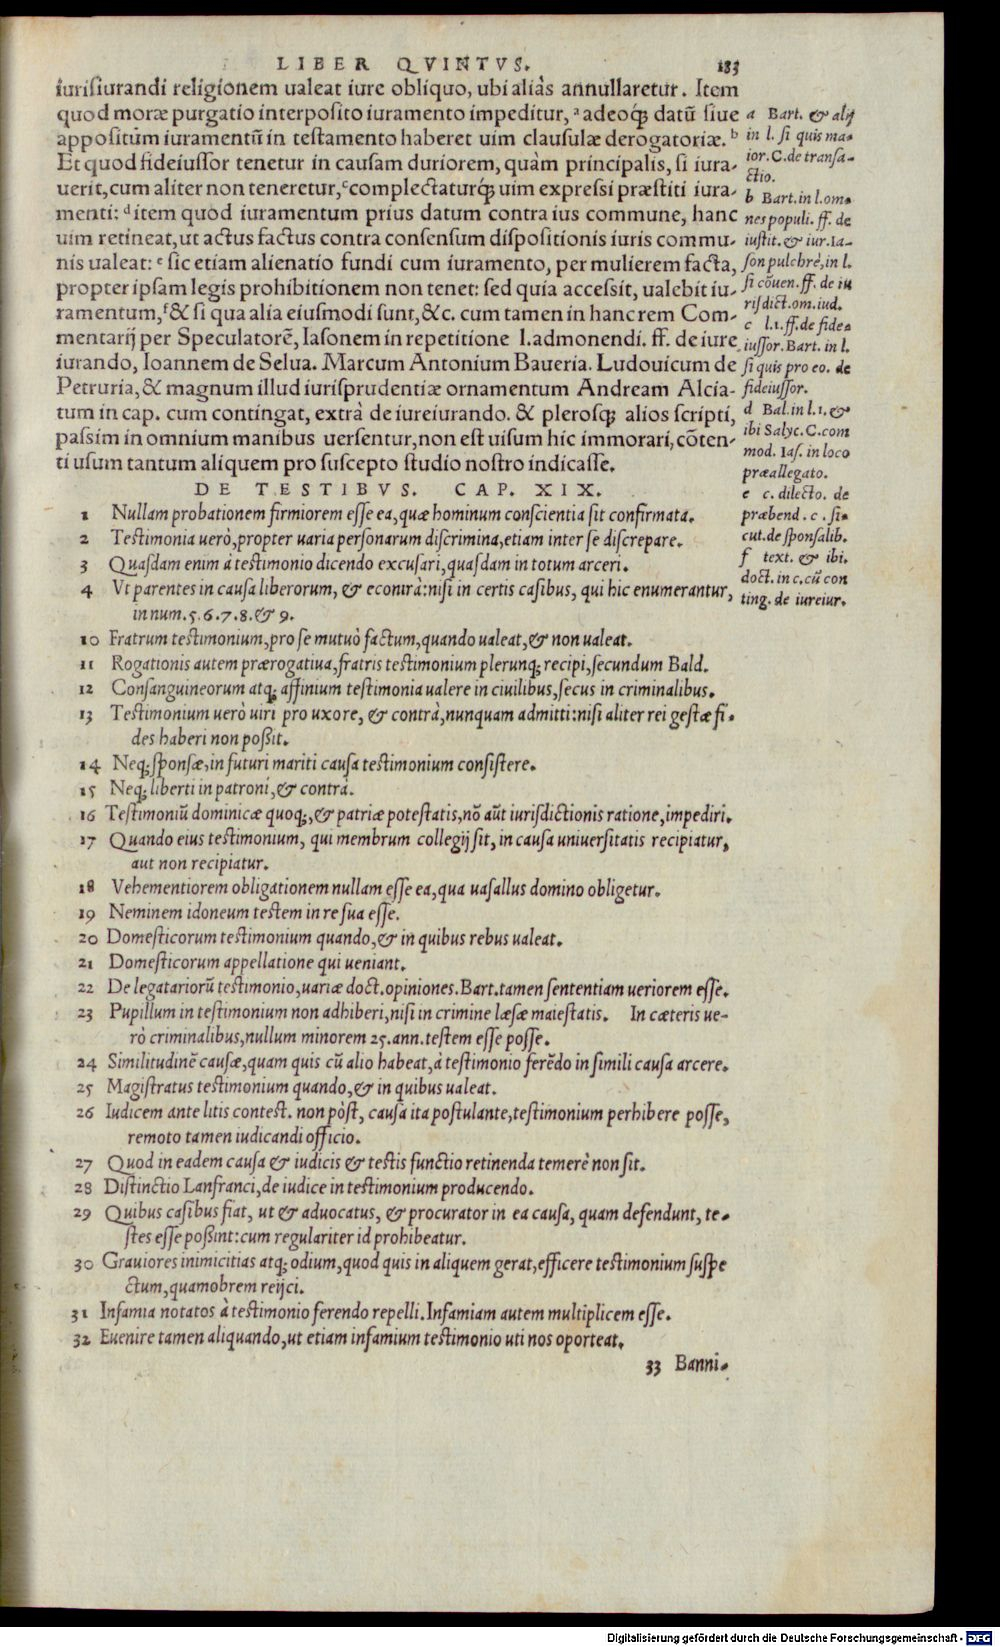 LIBER QVINTVS. 183
iurisiurandi religionem ualeat iure obliquo, ubi aliàs annullaretur. Item
quod moræ purgatio interposito iuramento impeditur, ᵃ adeoq́; datū siue
appositum iuramentū in testamento haberet uim clausulæ derogatoriæ. ᵇ
Et quod fideiussor tenetur in causam duriorem, quàm principalis, si iura-
uerit, cum aliter non teneretur, ᶜ complectaturq́; uim expressi præstiti iura-
menti: ᵈ item quod iuramentum prius datum contra ius commune, hanc
uim retineat, ut actus factus contra consensum dispositionis iuris commu-
nis ualeat: ᵉ sic etiam alienatio fundi cum iuramento, per mulierem facta,
propter ipsam legis prohibitionem non tenet: sed quia accessit, ualebit iu-
ramentum, ᶠ & si qua alia eiusmodi sunt, &c. cum tamen in hanc rem Com-
mentarij per Speculatorē, Iasonem in repetitione l. admonendi. ff. de iure
iurando, Ioannem de Selua. Marcum Antonium Baueria. Ludouicum de
Petruria, & magnum illud iurisprudentiæ ornamentum Andream Alcia-
tum in cap. cum contingat, extrà de iureiurando. & plerosq; alios scripti,
passim in omnium manibus uersentur, non est uisum hic immorari, cōten-
ti usum tantum aliquem pro suscepto studio nostro indicasse.
a Bart. & alij
in l. si quis ma-
ior. C. de transa-
ctio.
b Bart. in l. om-
nes populi. ff. de
iustit. & iur. Ia-
son pulchrè, in l.
si cōuen. ff. de iu
risdict. om. iud.
c l. 1. ff. de fide-
iussor. Bart. in l.
si quis pro eo. de
fideiussor.
d Bal. in l. 1. &
ibi Salyc. C. com
mod. Ias. in loco
præallegato.
e c. dilecto. de
præbend. c. si-
cut. de sponsalib.
f text. & ibi.
doct. in c. cū con
ting. de iureiur.
DE TESTIBVS. CAP. XIX.
1 Nullam probationem firmiorem esse ea, quæ hominum conscientia sit confirmata.
2 Testimonia uerò, propter uaria personarum discrimina, etiam inter se discrepare.
3 Quasdam enim à testimonio dicendo excusari, quasdam in totum arceri.
4 Vt parentes in causa liberorum, & econtrà: nisi in certis casibus, qui hic enumerantur,
in num. 5. 6. 7. 8. & 9.
10 Fratrum testimonium, pro se mutuò factum, quando ualeat, & non ualeat.
11 Rogationis autem prærogatiua, fratris testimonium plerunq; recipi, secundum Bald.
12 Consanguineorum atq; affinium testimonia ualere in ciuilibus, secus in criminalibus.
13 Testimonium uerò uiri pro uxore, & contrà, nunquam admitti: nisi aliter rei gestæ fi-
des haberi non possit.
14 Neq; sponsæ, in futuri mariti causa testimonium consistere.
15 Neq; liberti in patroni, & contrà.
16 Testimoniū dominicæ quoq;, & patriæ potestatis, nō aūt iurisdictionis ratione, impediri.
17 Quando eius testimonium, qui membrum collegij sit, in causa uniuersitatis recipiatur,
aut non recipiatur.
18 Vehementiorem obligationem nullam esse ea, qua uasallus domino obligetur.
19 Neminem idoneum testem in re sua esse.
20 Domesticorum testimonium quando, & in quibus rebus ualeat.
21 Domesticorum appellatione qui ueniant.
22 De legatariorū testimonio, uariæ doct. opiniones. Bart. tamen sententiam ueriorem esse.
23 Pupillum in testimonium non adhiberi, nisi in crimine læsæ maiestatis. In cæteris ue-
rò criminalibus, nullum minorem 25. ann. testem esse posse.
24 Similitudinē causæ, quam quis cū alio habeat, à testimonio ferēdo in simili causa arcere.
25 Magistratus testimonium quando, & in quibus ualeat.
26 Iudicem ante litis contest. non pòst, causa ita postulante, testimonium perhibere posse,
remoto tamen iudicandi officio.
27 Quod in eadem causa & iudicis & testis functio retinenda temerè non sit.
28 Distinctio Lanfranci, de iudice in testimonium producendo.
29 Quibus casibus fiat, ut & aduocatus, & procurator in ea causa, quam defendunt, te-
stes esse possint: cum regulariter id prohibeatur.
30 Grauiores inimicitias atq; odium, quod quis in aliquem gerat, efficere testimonium suspe
ctum, quamobrem reijci.
31 Infamia notatos à testimonio ferendo repelli. Infamiam autem multiplicem esse.
32 Euenire tamen aliquando, ut etiam infamium testimonio uti nos oporteat.
33 Banni-
Digitalisierung gefördert durch die Deutsche Forschungsgemeinschaft - DFG